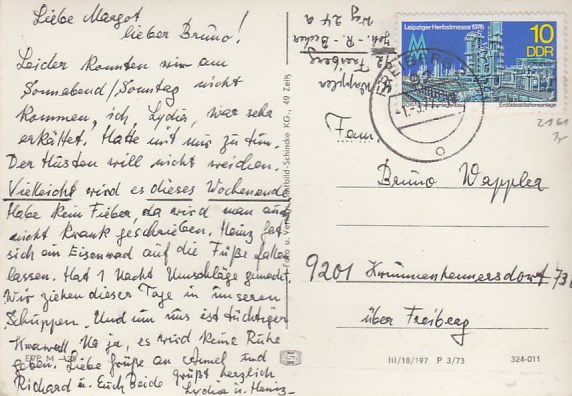 Liebe Margot
lieber Bruno!
Leider konnten wir am
Sonnabend/Sonntag nicht
kommen, ich, Lydia, war sehr
erkältet. Hatte mit mir zu tun.
Der Husten will nicht weichen.
Vielleicht wird es dieses Wochenend
Habe kein Fieber, da wird man auch
nicht krank geschrieben. Heinz hat
sich ein Eisenrad auf die Füße fallen
lassen. Hat 1 Nacht Umschläge gemacht.
Wir ziehen dieser Tage in unseren
Schuppen. Und um uns ist tüchtiger
Krawall. Na ja, es wird keine Ruhe
geben. Liebe Grüße an Armel und
Richard u. Euch Beide grüßt herzlich
Lydia u. Heinz
Wappler
92 Freiberg
Joh.-R. Becher
Weg 24 a
Leipziger Herbstmesse 1976
10
DDR
Fam.
Bruno Wappler
9201 Krummenhennersdorf 73
über Freiberg
III/18/197 P 3/73 324-011